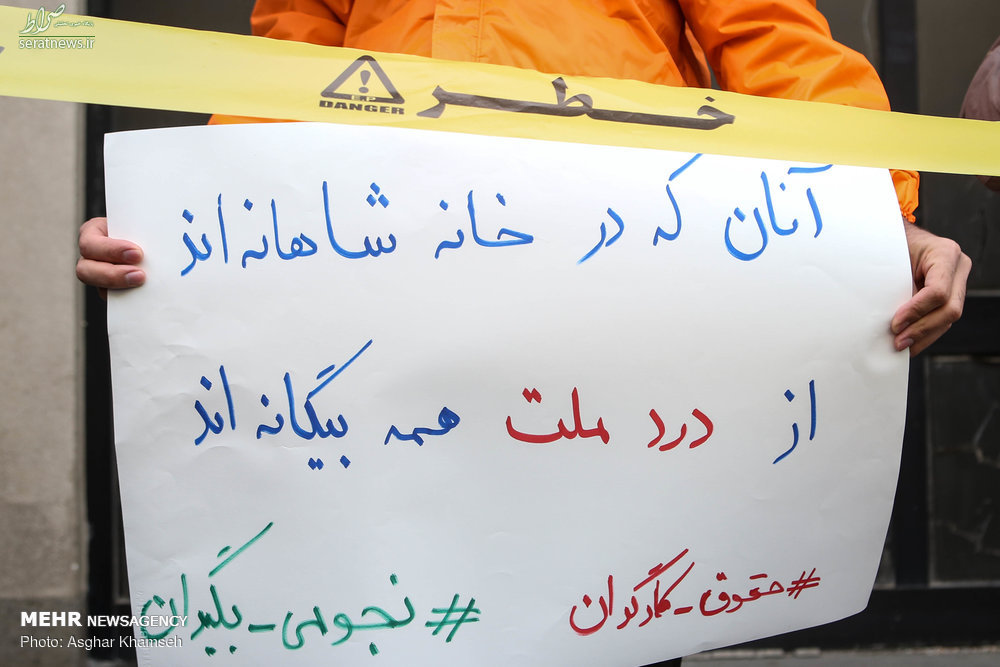 صراط
پایگاه خبری تحلیلی
seratnews.ir
خطر
E.P
DANGER
آنان که در خانه شاهانه‌اند
از درد ملت همه بیگانه‌اند
#حقوق_کارگران
#نجومی_بگیران
MEHR NEWSAGENCY
Photo: Asghar Khamseh